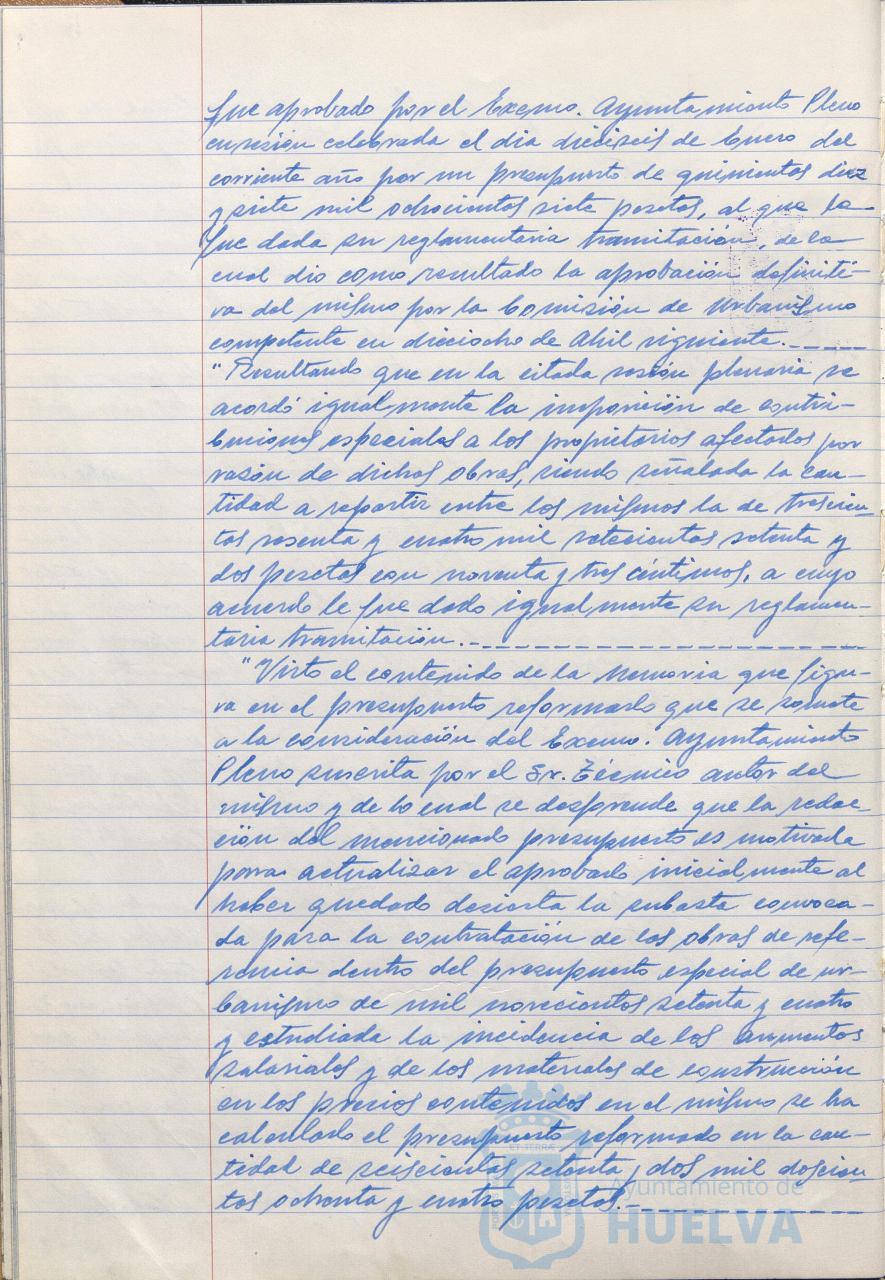 fue aprobado por el Excmo. Ayuntamiento Pleno
en sesión celebrada el dia dieciseis de Enero del
corriente año por un presupuesto de quinientos diez
y siete mil ochocientos siete pesetas, al que le
fue dada su reglamentaria tramitación, de la
cual dio como resultado la aprobación definiti-
va del mismo por la Comisión de Urbanismo
competente en dieciocho de Abril siguiente.
"Resultando que en la citada sesión plenaria se
acordó igualmente la imposición de contri-
buciones especiales a los propietarios afectados por
razón de dichas obras, siendo señalada la can-
tidad a repartir entre los mismos la de trescien-
tas sesenta y cuatro mil setecientas setenta y
dos pesetas con noventa y tres céntimos, a cuyo
acuerdo le fue dado igualmente su reglamen-
taria tramitación.
"Visto el contenido de la Memoria que figu-
ra en el presupuesto reformado que se somete
a la consideración del Excmo. Ayuntamiento
Pleno suscrita por el Sr. Técnico autor del
mismo y de lo cual se desprende que la redac-
ción del mencionado presupuesto es motivada
para actualizar el aprobado inicialmente al
haber quedado desierta la subasta convoca-
da para la contratación de las obras de refe-
rencia dentro del presupuesto especial de ur-
banismo de mil novecientos setenta y cuatro
y estudiada la incidencia de los aumentos
salariales y de los materiales de construcción
en los precios contenidos en el mismo se ha
calculado el presupuesto reformado en la can-
tidad de seiscientas setenta y dos mil doscien-
tas ochenta y cuatro pesetas.
Ayuntamiento de
HUELVA